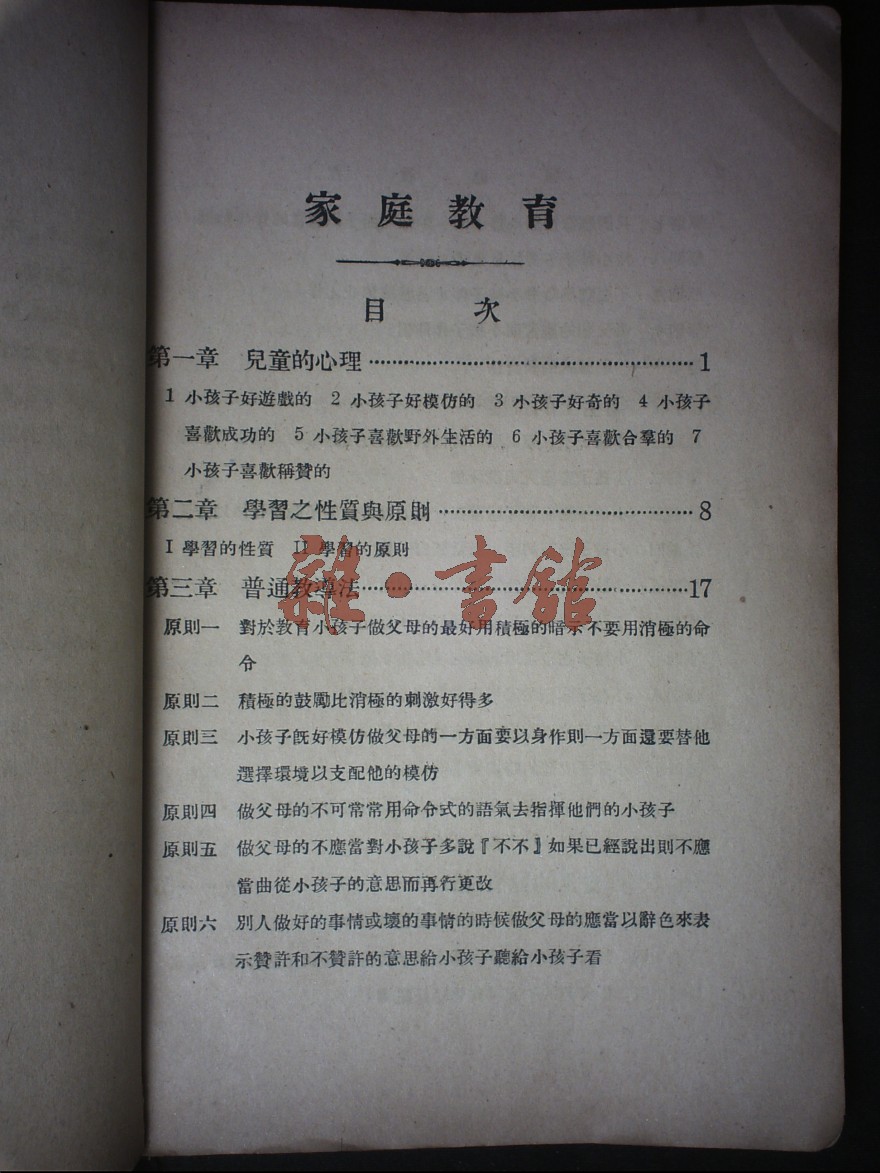 家庭教育
目次
第一章 兒童的心理……………………………………………1
1 小孩子好遊戲的 2 小孩子好模仿的 3 小孩子好奇的 4 小孩子
喜歡成功的 5 小孩子喜歡野外生活的 6 小孩子喜歡合羣的 7
小孩子喜歡稱贊的
第二章 學習之性質與原則……………………………………8
I 學習的性質 II 學習的原則
第三章 普通教導法……………………………………………17
原則一 對於教育小孩子做父母的最好用積極的暗示不要用消極的命
令
原則二 積極的鼓勵比消極的刺激好得多
原則三 小孩子旣好模仿做父母的一方面要以身作則一方面還要替他
選擇環境以支配他的模仿
原則四 做父母的不可常常用命令式的語氣去指揮他們的小孩子
原則五 做父母的不應當對小孩子多說『不不』如果已經說出則不應
當曲從小孩子的意思而再行更改
原則六 別人做好的事情或壞的事情的時候做父母的應當以辭色來表
示贊許和不贊許的意思給小孩子聽給小孩子看
雜·書館